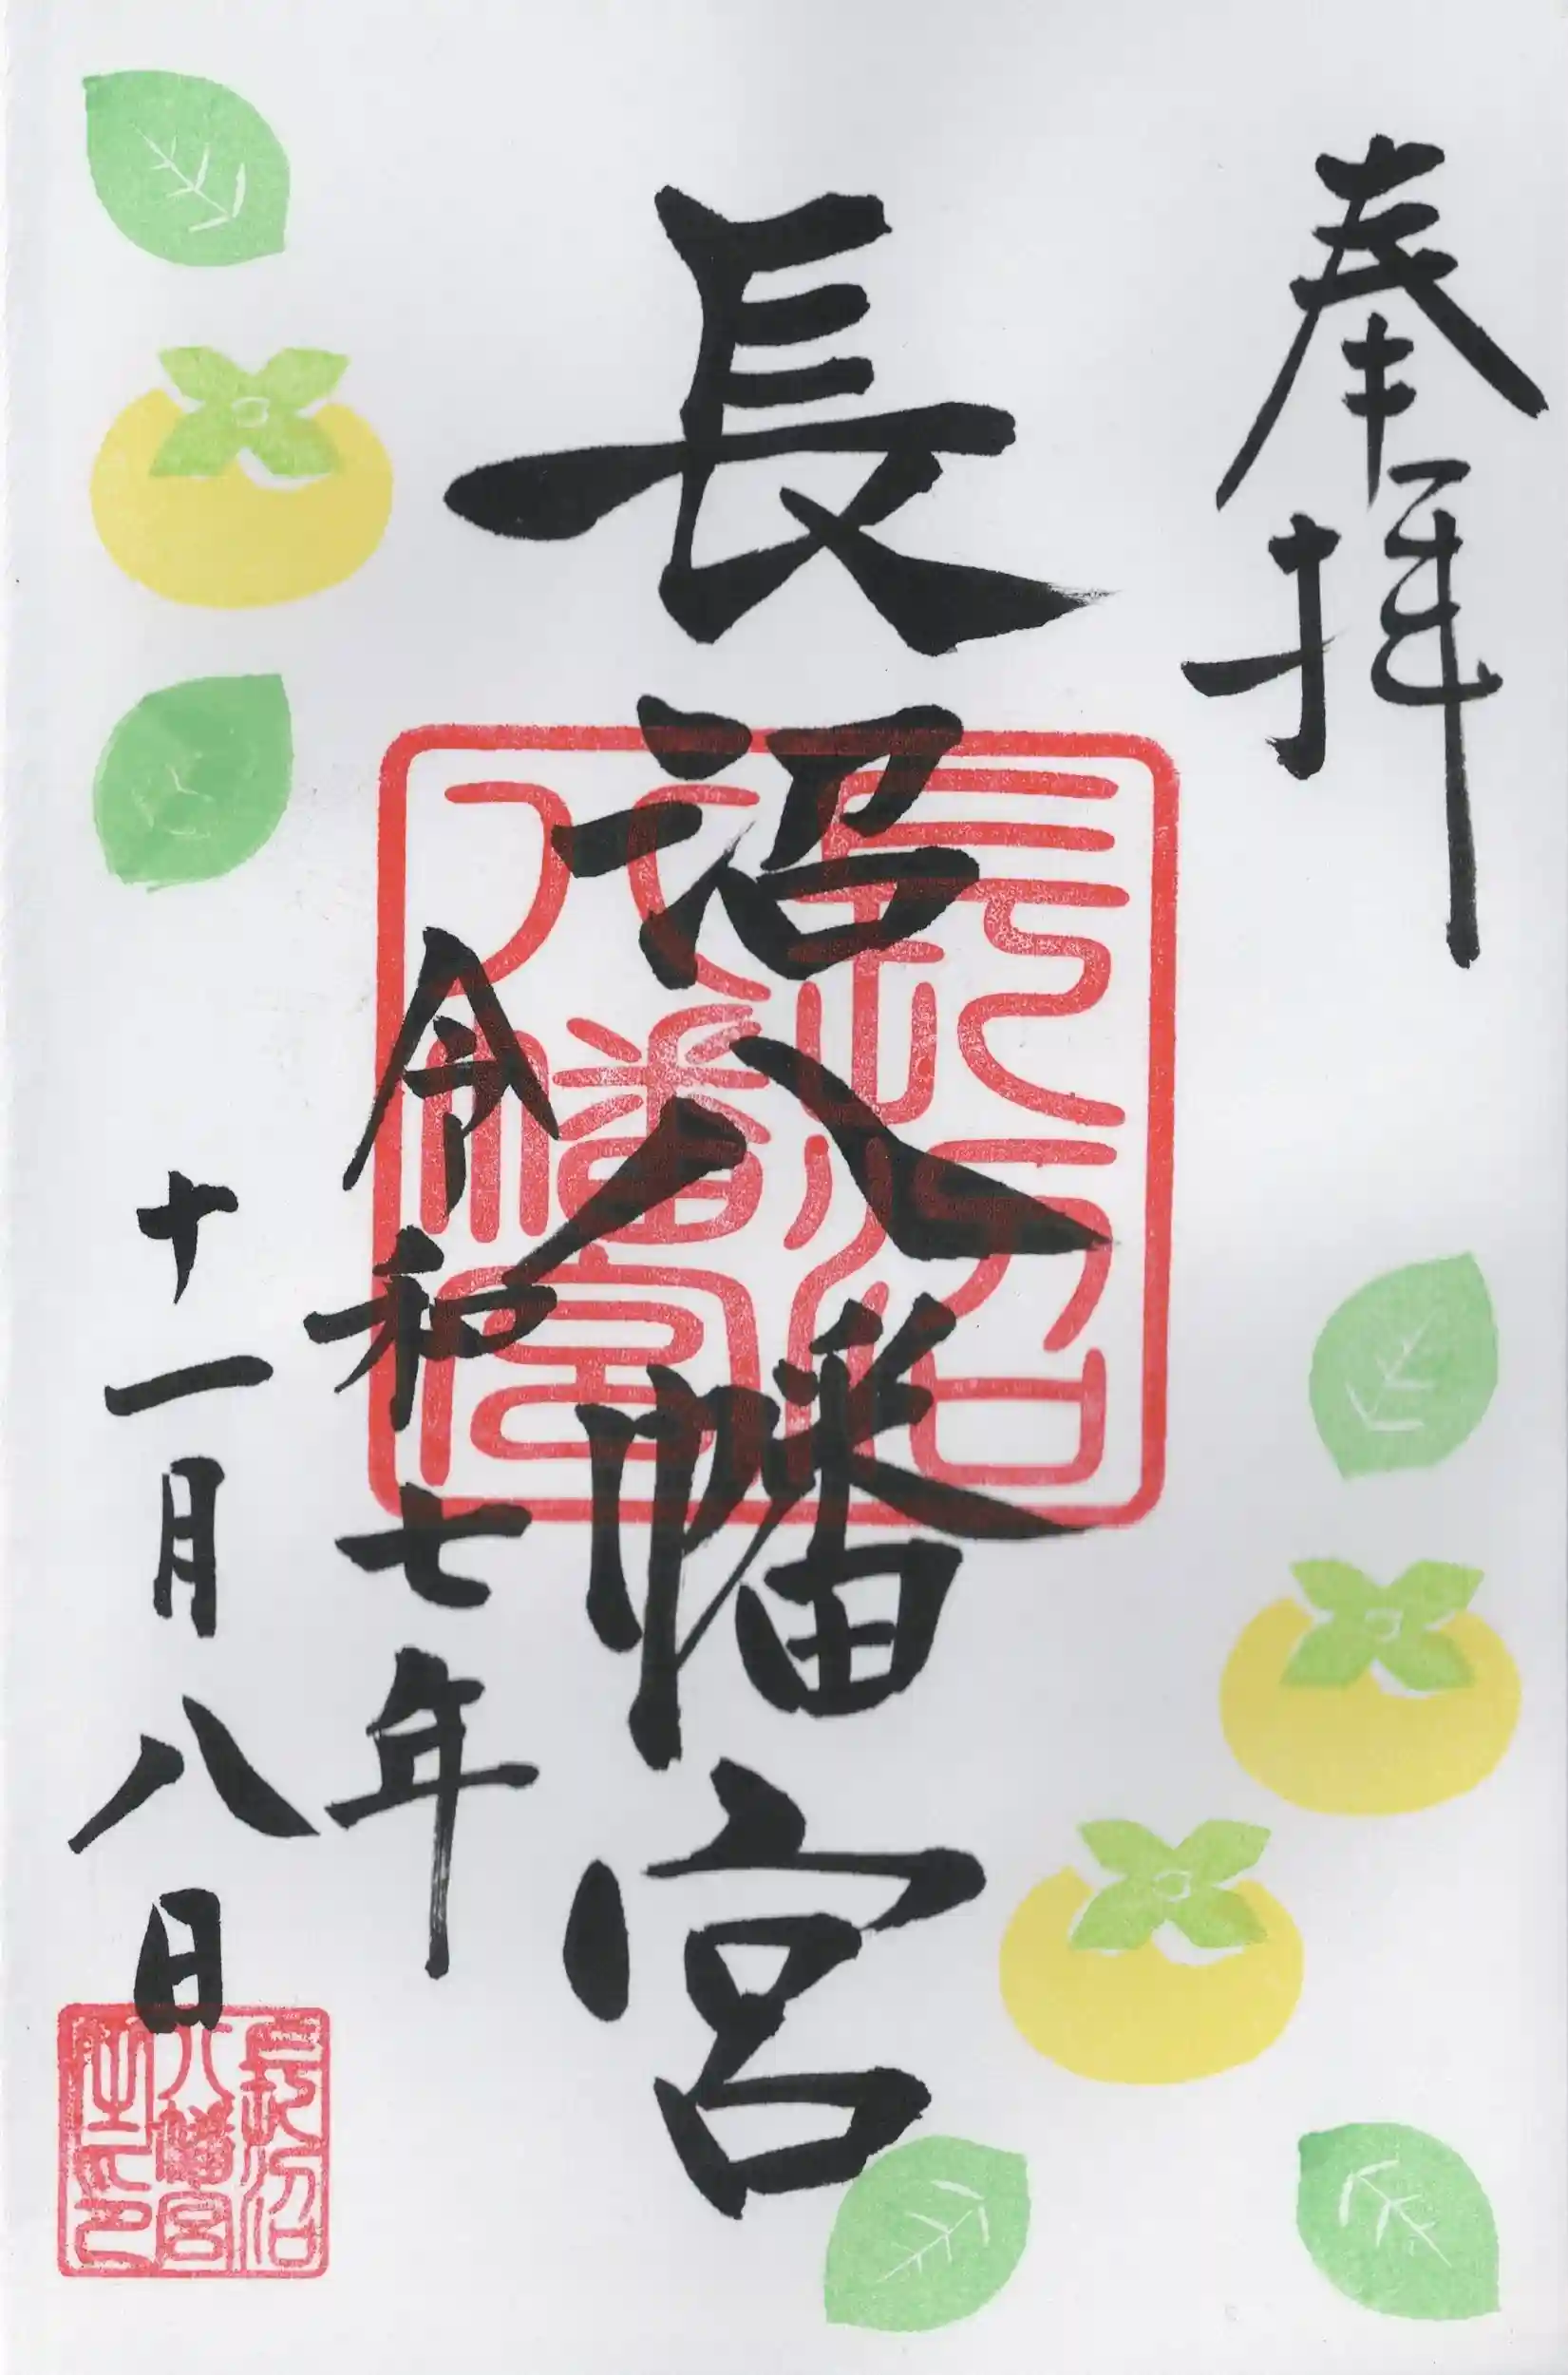 奉拝
長沼八幡宮
長沼
八幡宮
令和七年
十一月八日
長沼
八幡宮
之印